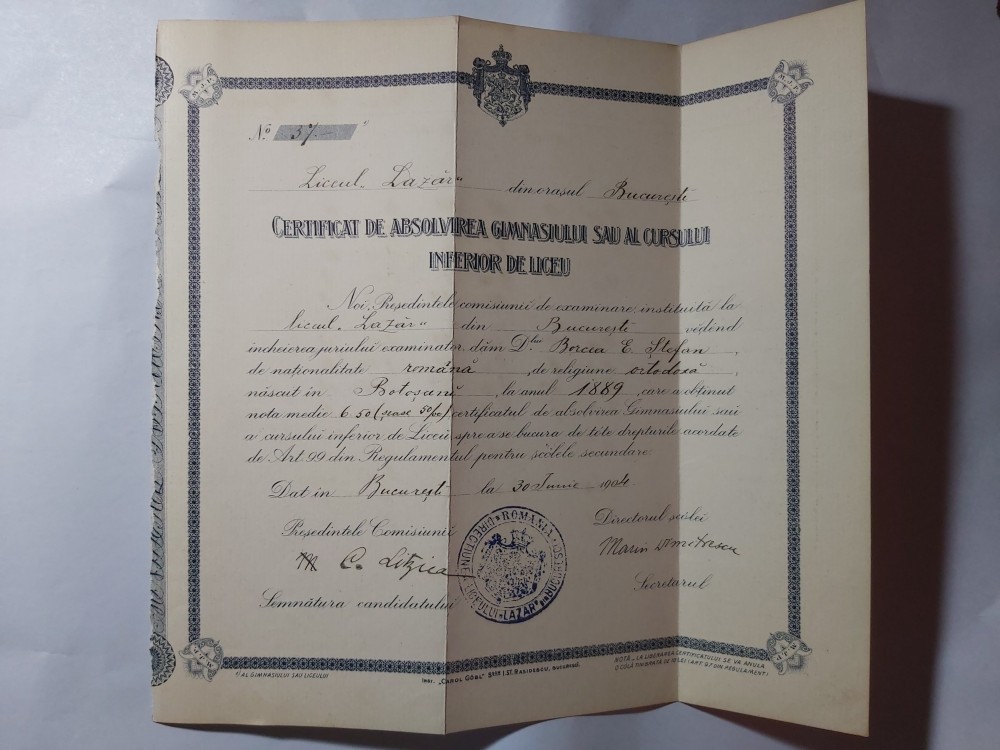 No 37 1)
Liceul „Lazăr" din orașul București
CERTIFICAT DE ABSOLVIREA GIMNASIULUI SAU AL CURSULUI
INFERIOR DE LICEU
Noi, Președintele comisiunii de examinare, instituită la
liceul „Lazăr" din București vĕdĕnd
incheierea juriului examinator, dăm D-lui Borcea E. Ștefan,
de naționalitate română, de religiune ortodoxă,
născut în Botoșani, la anul 1889, care a obținut
nota medie 6.50 (șease 50/00) certificatul de absolvirea Gimnasiului sau
a cursului inferior de Liceu spre a se bucura de tóte drepturile acordate
de Art. 99 din Regulamentul pentru șcólele secundare
Dat in București la 30 Iunie 1904
Președintele Comisiunii
Directorul șcólei
C. Litzica
Marin Dimitrescu
Secretarul
Semnătura candidatului
ROMANIA
DIRECTIUNEA LICEULUI „LAZAR" DIN BUCURESTI
1) AL GIMNASIULUI SAU LICEULUI
Impr. „CAROL GÖBL" S-sor I. ST. RASIDESCU, BUCURESCI.
NOTĂ.- LA LIBERAREA CERTIFICATULUI SE VA ANULA
O COLĂ TIMBRATĂ DE 10 LEI (ART. 97 DIN REGULAMENT)